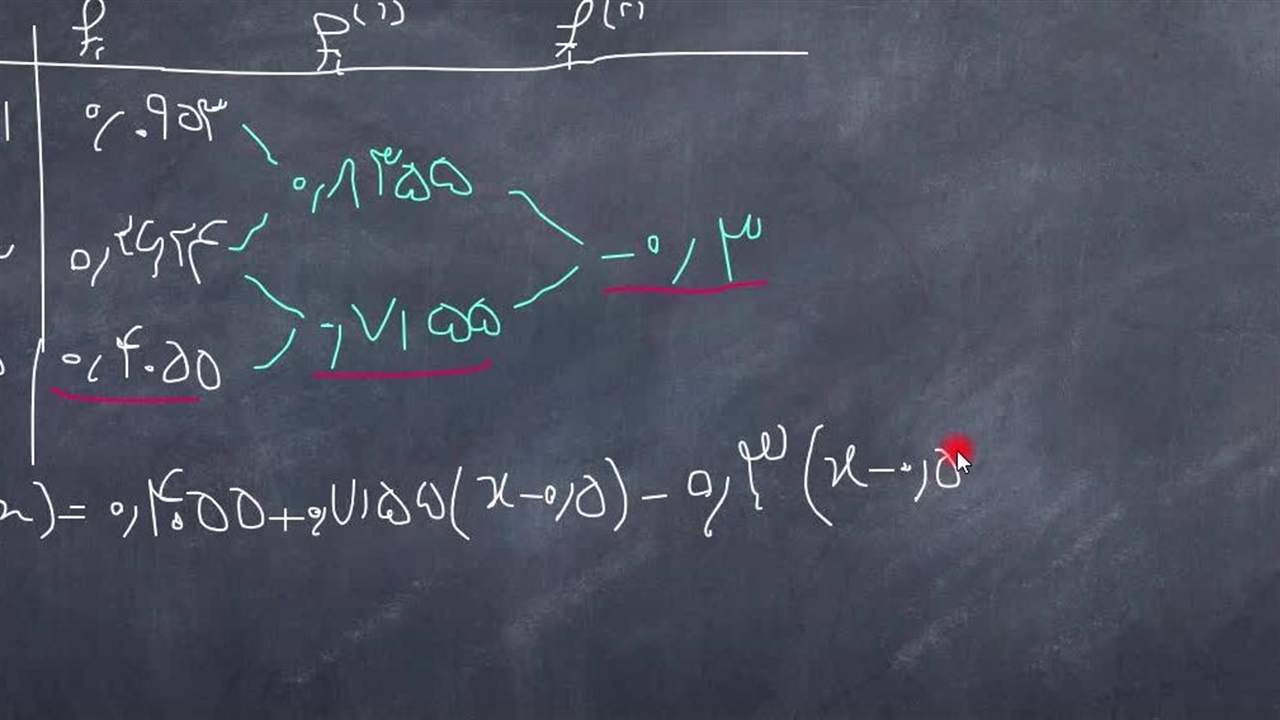 f_i f_i^(۱) f_i^(۲)
۰,۰۹۵۳
۰,۸۳۵۵
۰,۲۶۲۴ -۰,۳
۰,۷۱۵۵
۰,۴۰۵۵
x) = ۰,۴۰۵۵ + ۰,۷۱۵۵(x-۰,۵) - ۰,۳(x-۰,۵